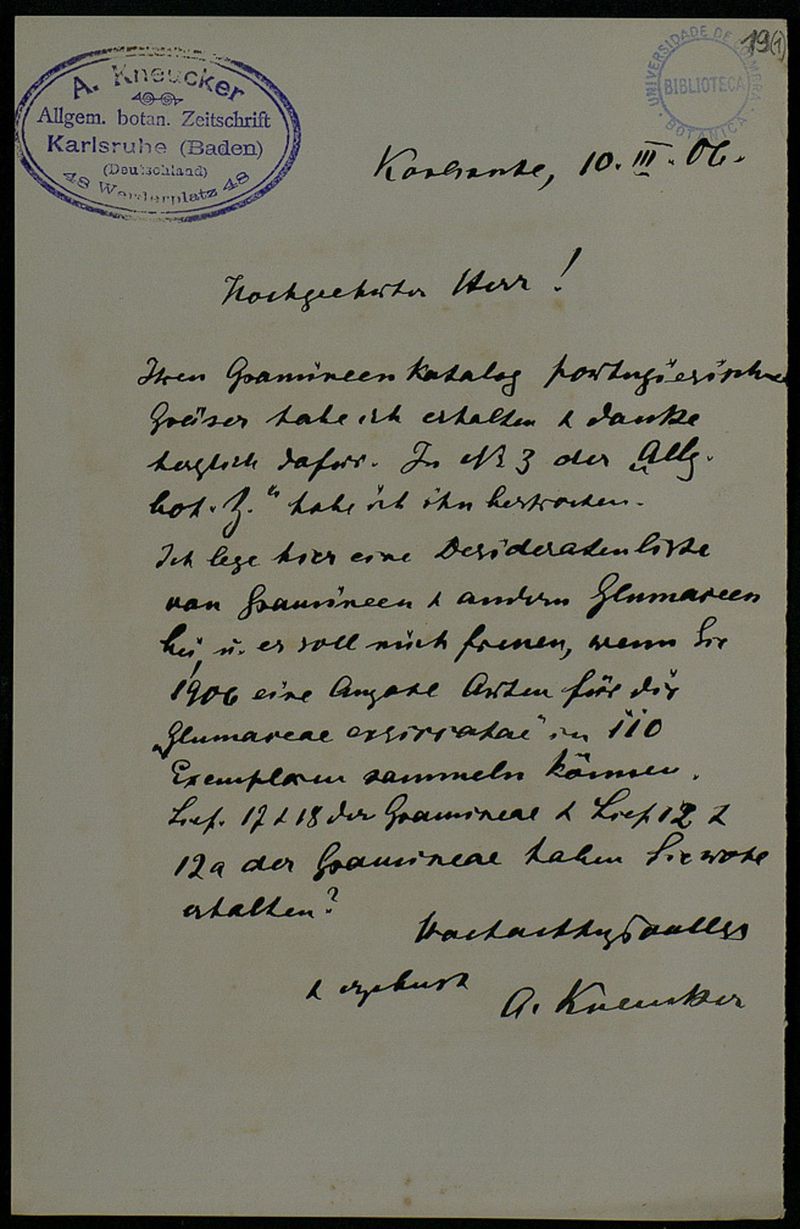 A. Kneucker
Allgem. botan. Zeitschrift
Karlsruhe (Baden)
(Deutschland)
48 Werderplatz 48
UNIVERSIDADE DE COIMBRA
BIBLIOTECA
BOTANICA
19(1)
Karlsruhe, 10. III. 06.
Hochgeehrter Herr!
Ihren Gramineenkatalog portugiesischer
Gräser habe ich erhalten & danke
herzlich dafür. In № 3 der „Allg.
bot. Z." habe ich ihn besprochen.
Ich lege hier eine Desideratenliste
von Gramineen & andern Glumaceen
bei, u. es soll mich freuen, wenn Sie
1906 eine Anzahl Arten für die
„Glumaceae exsiccatae" in 110
Exemplaren sammeln können.
Lief. 17 & 18 der Gramineae & Lief 12 &
12a der Gramineae haben Sie wohl
erhalten?
Hochachtungsvollst
& ergebenst
A. Kneucker